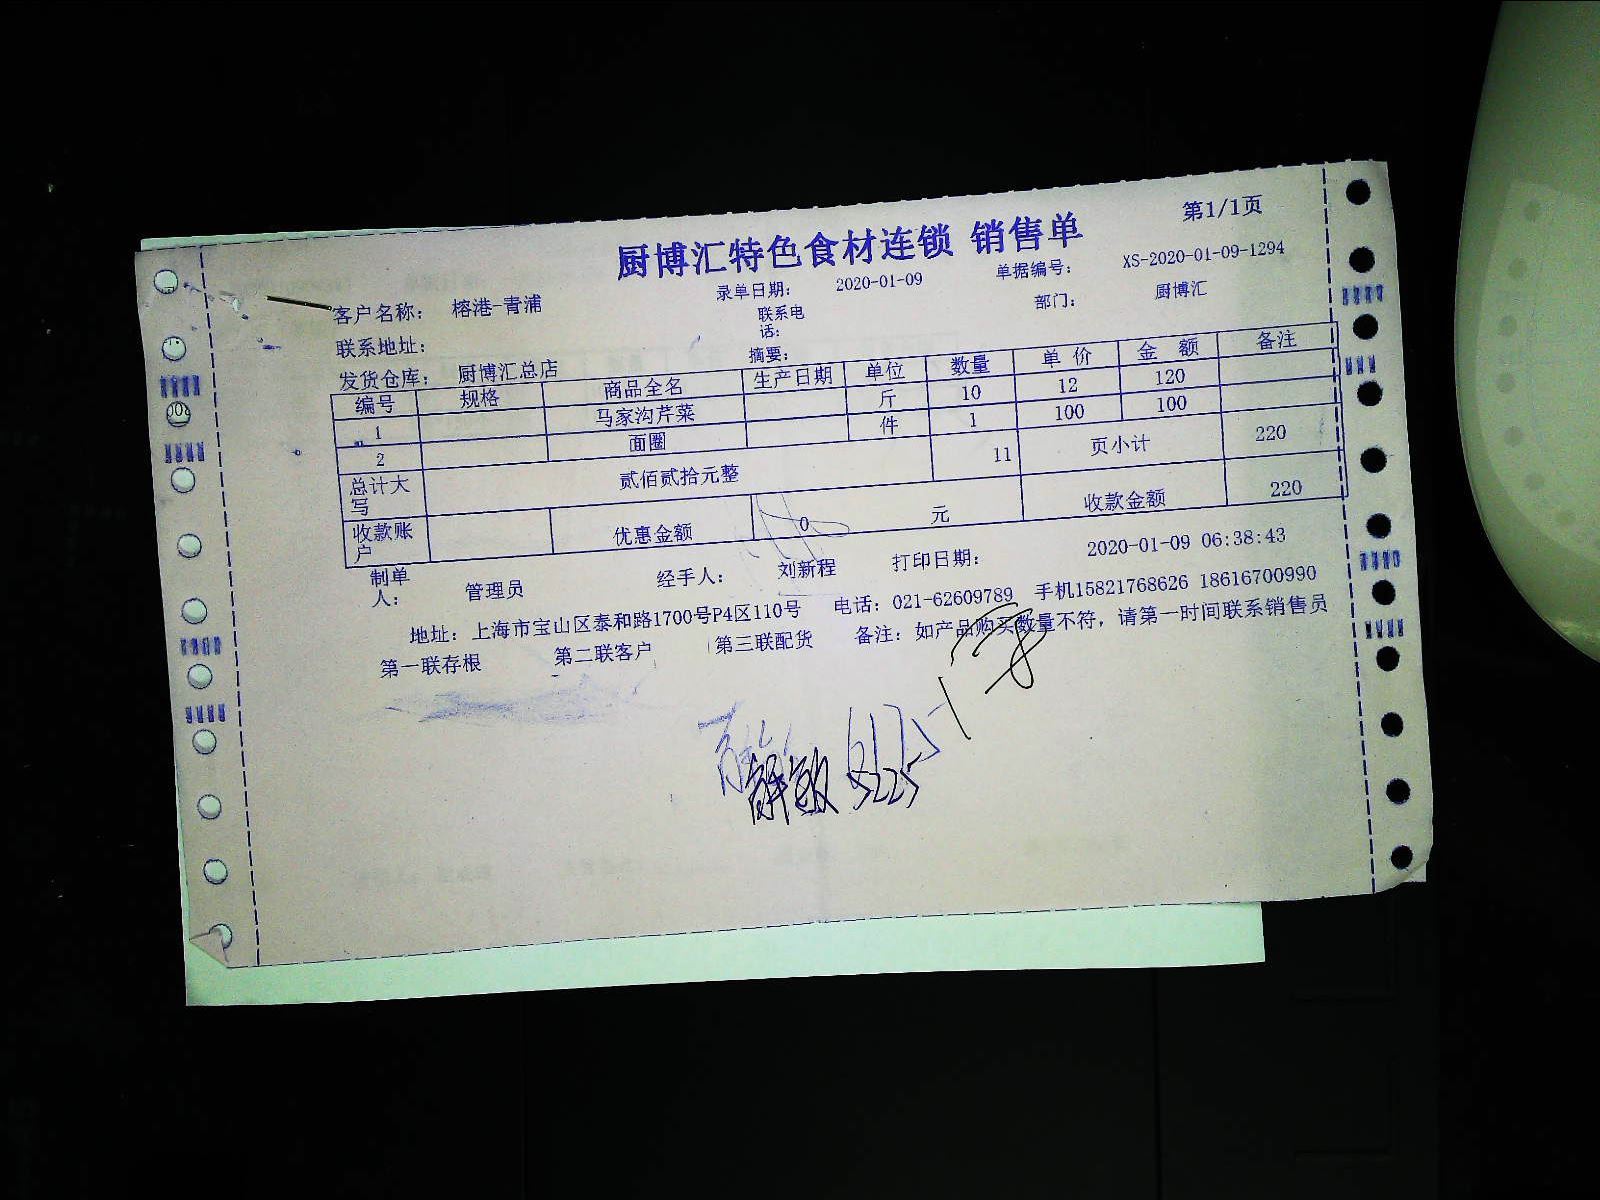 厨博汇特色食材连锁 销售单
第1/1页
客户名称： 榕港-青浦 录单日期： 2020-01-09 单据编号： XS-2020-01-09-1294
联系地址： 联系电话： 部门： 厨博汇
发货仓库： 厨博汇总店 摘要：
编号 规格 商品全名 生产日期 单位 数量 单价 金额 备注
1 马家沟芹菜 斤 10 12 120
2 面圈 件 1 100 100
总计大写 贰佰贰拾元整 11 页小计 220
收款账户 优惠金额 0 元 收款金额 220
制单人： 管理员 经手人： 刘新程 打印日期： 2020-01-09 06:38:43
地址：上海市宝山区泰和路1700号P4区110号 电话：021-62609789 手机15821768626 18616700990
第一联存根 第二联客户 第三联配货 备注：如产品购买数量不符，请第一时间联系销售员